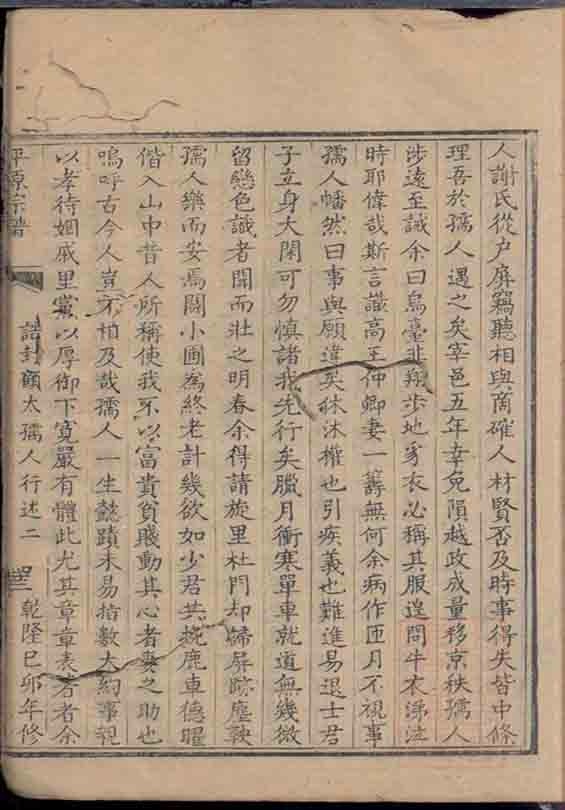 人謝氏從户屏竊聽相與商確人材賢否及時事得失皆中條
理吾於孺人遇之矣宰邑五年幸免隕越政成量移京秩孺人
涉遠至誡余曰烏臺非翔步地豸衣必稱其服遑問牛衣涕泣
時耶偉哉斯言識高王仲卿妻一籌無何余病作匝月不視事
孺人幡然曰事與願違矣休沐權也引疾義也難進易退士君
子立身大閑可勿慎諸我先行矣臘月衝寒單車就道無幾微
留戀色識者聞而壯之明春余得請旋里杜門却歸屏跡塵鞅
孺人樂而安焉闢小圃為終老計幾欲如少君共挽鹿車德曜
偕入山中昔人所稱使我不以富貴貧賤動其心者妻之助也
嗚呼古今人豈不相及哉孺人一生懿蹟未易指數大約事親
以孝待婣戚里黨以厚御下寬嚴有體此尤其章章表著者余
平原宗譜 誥封顧太孺人行述二 乾隆己卯年修